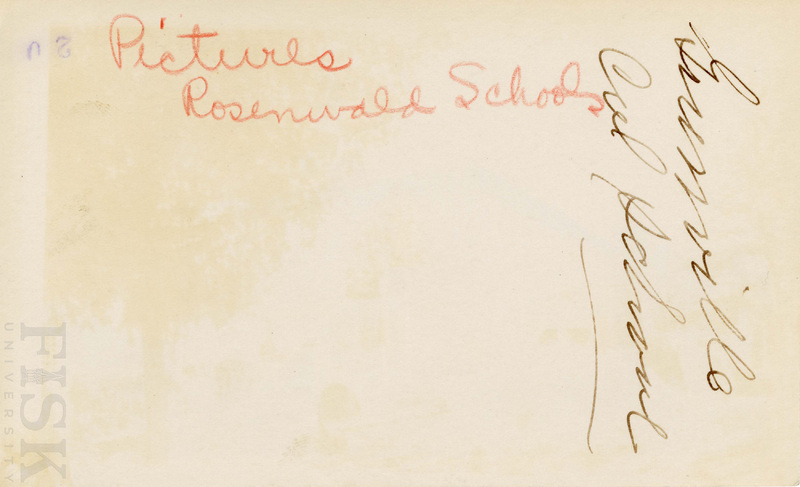 Pictures
Rosenwald Schools
Greenville
FISK
UNIVERSITY